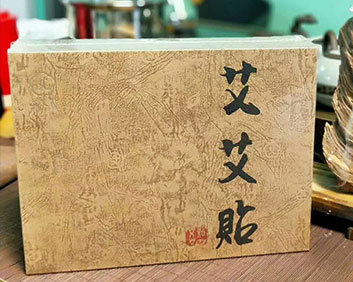 艾艾貼